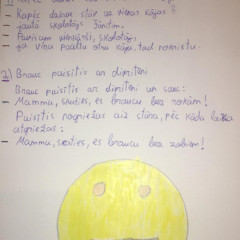 - Kāpēc stārķis stāv uz vienas kājas?
- jautā skolotājs Jānītim.
- Pavisam vienkārši, skolotāj,
- ja viņu paceltu otru kāju, tad nokristu.
2) Brauc puisītis ar divriteni
Brauc puisītis ar divriteni un sauc:
- Mammu, skaties, es braucu bez rokām!
Puisītis nogriežas aiz stūra, pēc kāda laika
atgriežas:
- Mammu, skaties, es braucu bez zobiem!